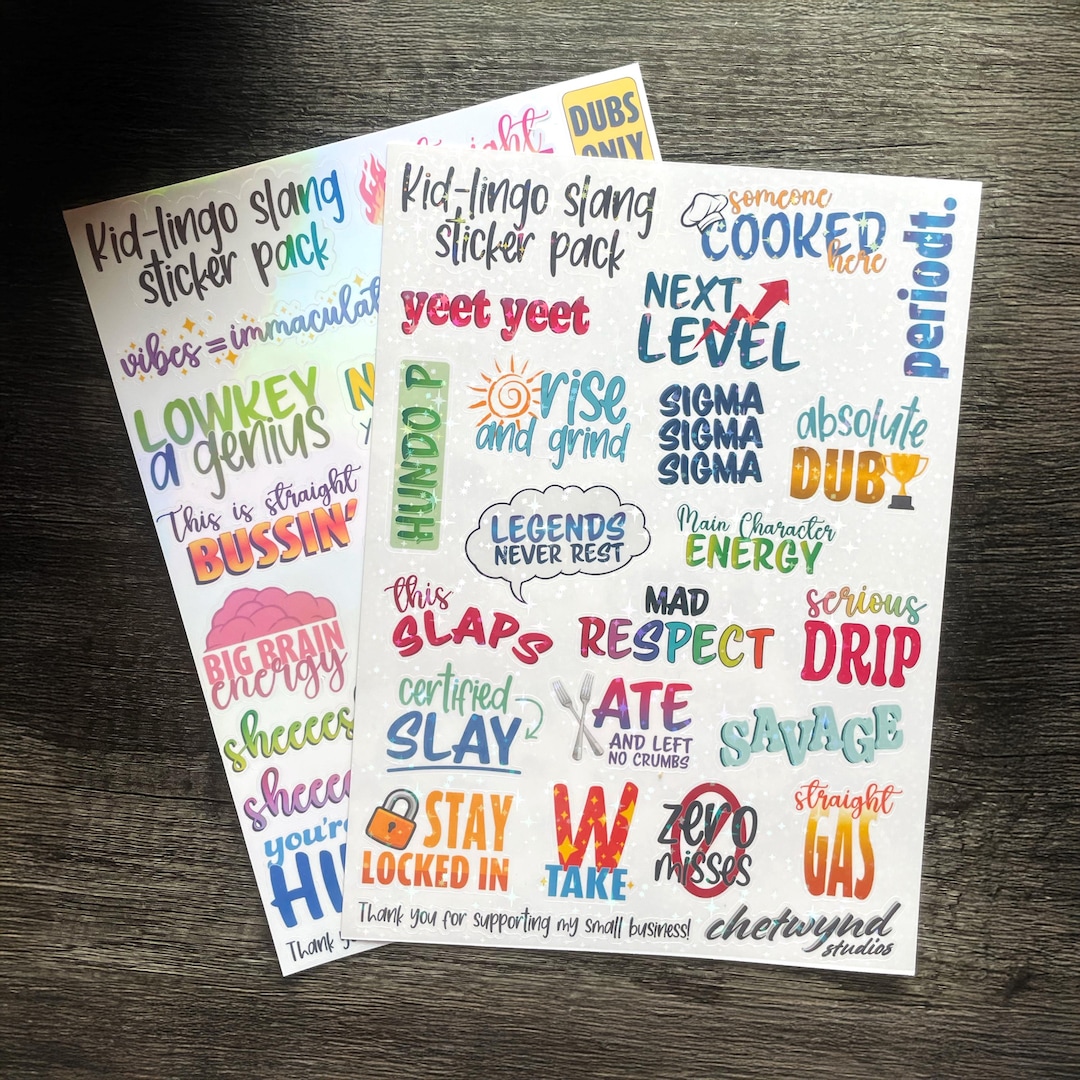 Kid-lingo slang
sticker pack
someone
COOKED
here
periodt.
yeet yeet
NEXT
LEVEL
HUNDO P
rise
and grind
SIGMA
SIGMA
SIGMA
absolute
DUB
LEGENDS
NEVER REST
Main Character
ENERGY
this
SLAPS
MAD
RESPECT
serious
DRIP
certified
SLAY
ATE
AND LEFT
NO CRUMBS
SAVAGE
STAY
LOCKED IN
W
TAKE
zero
misses
straight
GAS
Thank you for supporting my small business!
chetwynd
studios
Kid-lingo slang
sticker pack
DUBS
ONLY
vibes = immaculat
LOWKEY
a genius
This is straight
BUSSIN'
BIG BRAIN
energy
sheeees
sheeee
you're
HU
Thank y